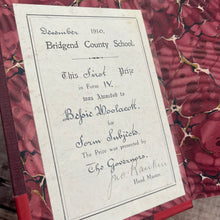 December 1910.
Bridgend County School.
This First Prize
in Form IV.
was Awarded to
Bessie Woolacott.
for
Form Subjects.
The Prize was presented by
The Governors.
Rankin
Head Master.